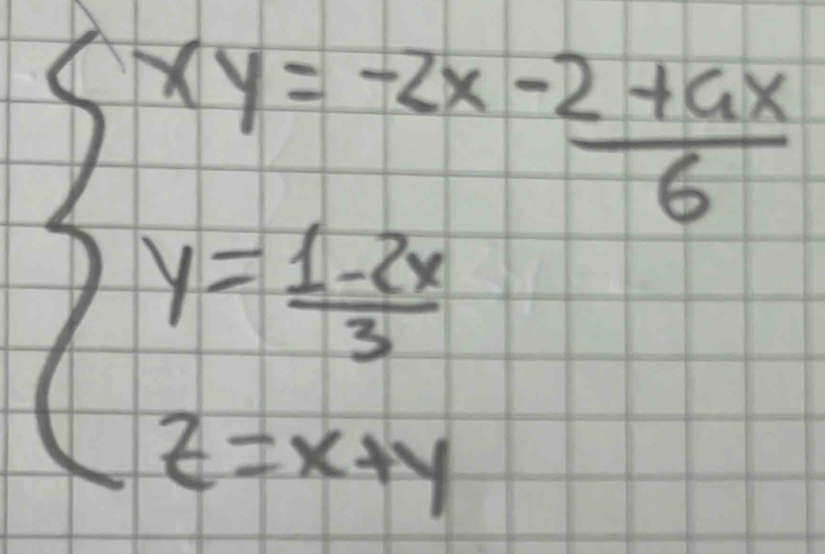 xy = -2x - \frac{2 + ax}{6}
y = \frac{1 - 2x}{3}
z = x + y